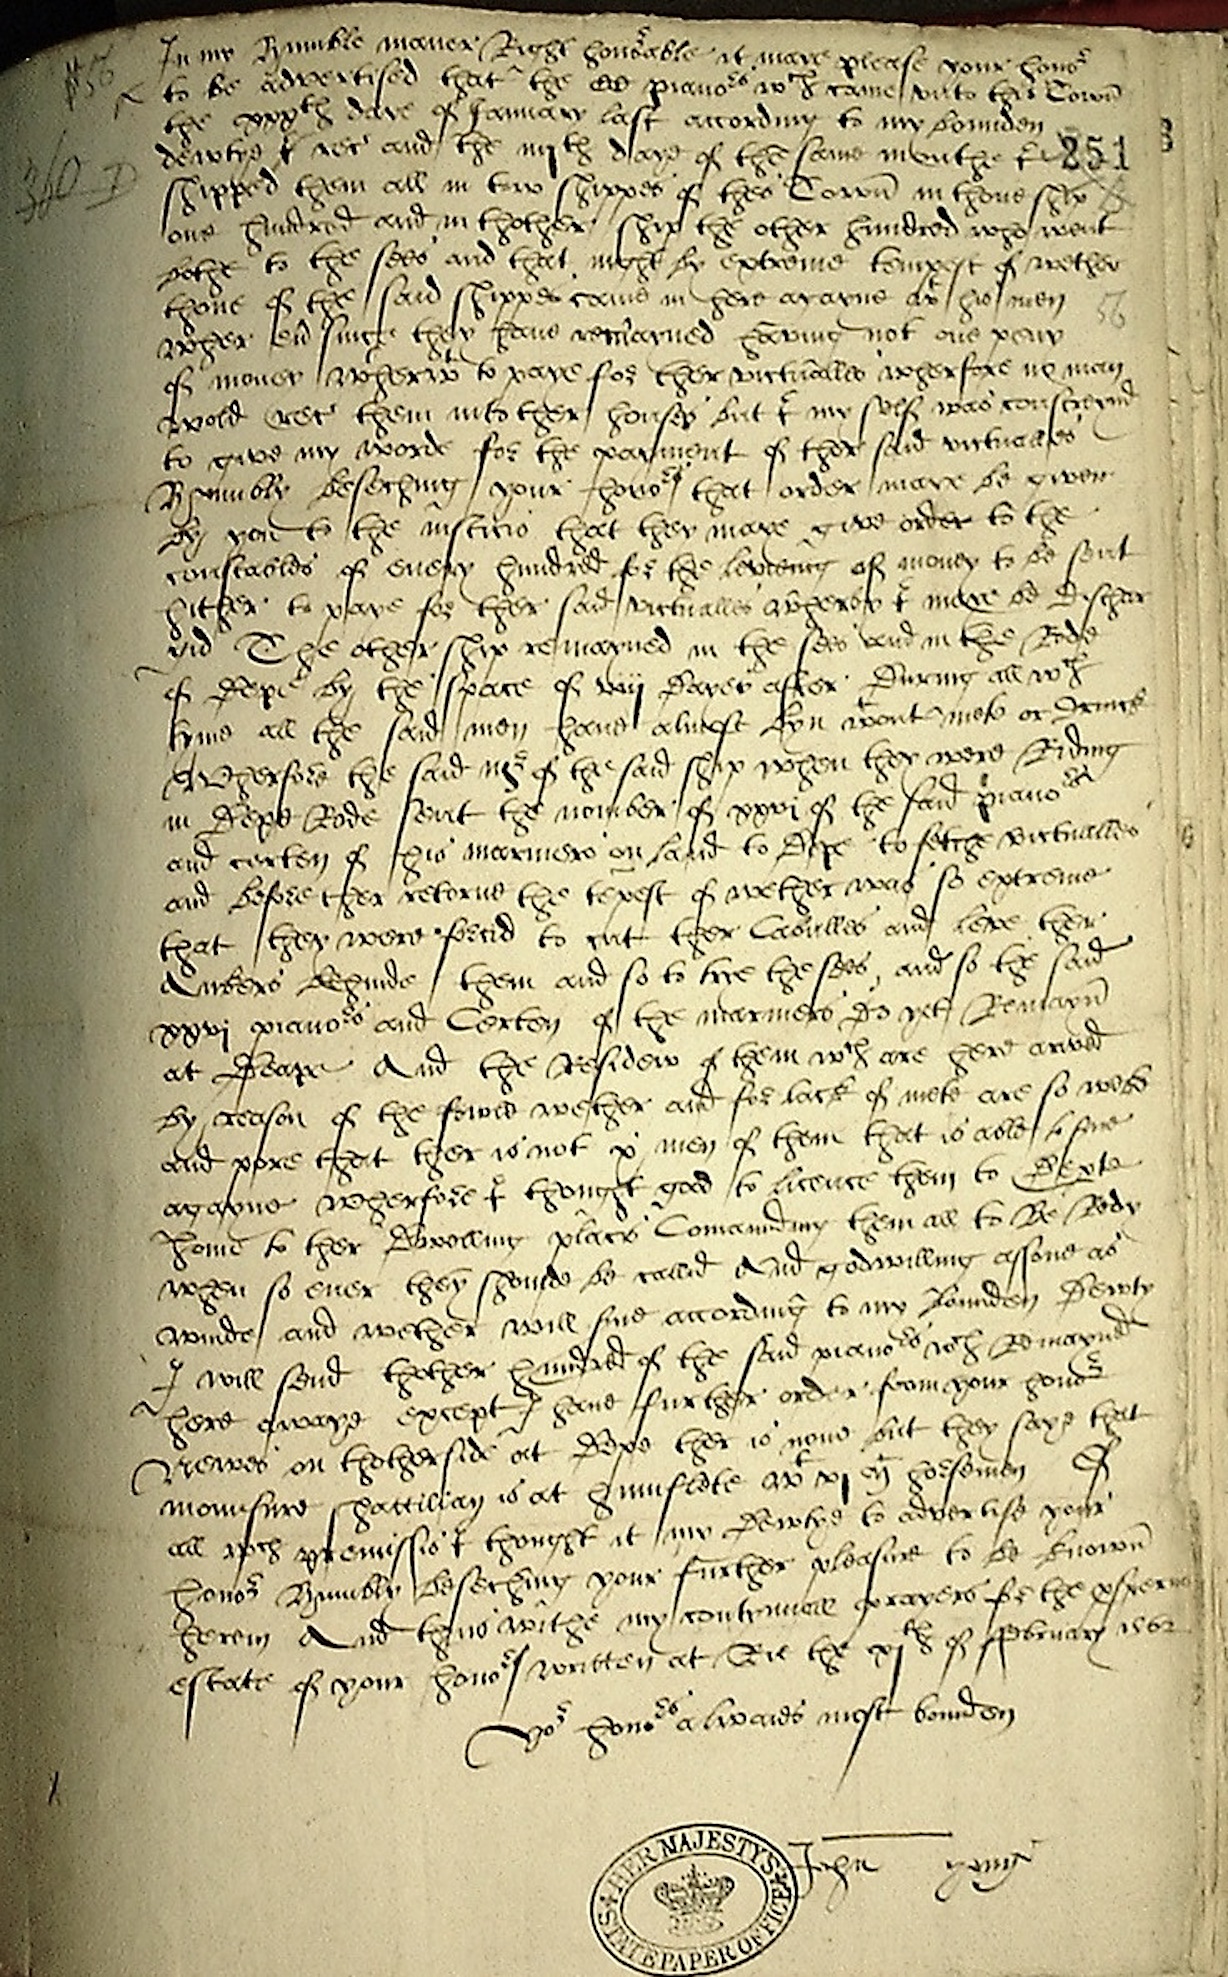 In my Humble maner Right honorable it maye please your honor
to be advertised that the CC pianors wch came vnto this Town
the xxxth daye of January last according to my bounden
dewtye I rec and the daye of the same monthe I 251
shipped them all in tow shippes of thes Town in thone ship
one hundred and in thother ship the other hundred who went
bothe to the sees and that night by extreme tempest of wether
thone of the said shippes came in here agayne wt his men
wher en since they have remayned having not one peny 56
of money wherwt to paye for ther victualles wherfore no man
wold rec them into ther houses but I my self was constreynd
to give my worde for the payment of ther said victualles
Humbly beseching your honors that order maye be given
by you to the Justicis that they maye give order to the
constables of every hundred for the levieng of money to be sent
hither to paye for ther said victualles wherby I maye be Dischar
gid The other ship remayned in the sees and in the Rode
of Depe by the space of viij Dayes after During all wch
tyme all the said men have almost byn wtout mete or drincke
Wherfore the said mr of the said ship when they were Riding
in Depe Rode sent the nomber of xxvi of the said pianors
and certen of his mariners on land to Depe to fetche victualles
and before ther retorne the tepest of wether was so extreme
that they were forcid to cut ther Cabulles and leve ther
Ankers behinde them and so to trye the sees, and so the said
xxvi pianors and Certen of the mariners Do yet Remayn
at Deape And the Residew of them wch are here arived
by reason of the fowle wether and for lack of mete are so weke
and pore that ther is not x men of them that is able to serve
agayne wherfore I thought good to licence them to Depte
home to ther Dwelling places Comaunding them all to Be Redy
when so ever they should be callid And godwilling assone as
winde and wether will serve according to my bounden Dewty
I will send thother hundred of the said pianors wch Remayned
here awaye except I have further order from your honors
Newes on thotherside at Depe ther is none but they saye that
mounsure Shattilian is at Hunflete wt horsemen Of
all wch premissis I thought it my Dewtye to advertise your
honors Humbly beseching your further pleasure to be known
herein And thus withe my contynuall prayers for the psperus
estate of your honors written at Rie the xjth of February 1562
Yor honors alwaies most bounden
John yong
HER MAJESTYS STATE PAPER OFFICE